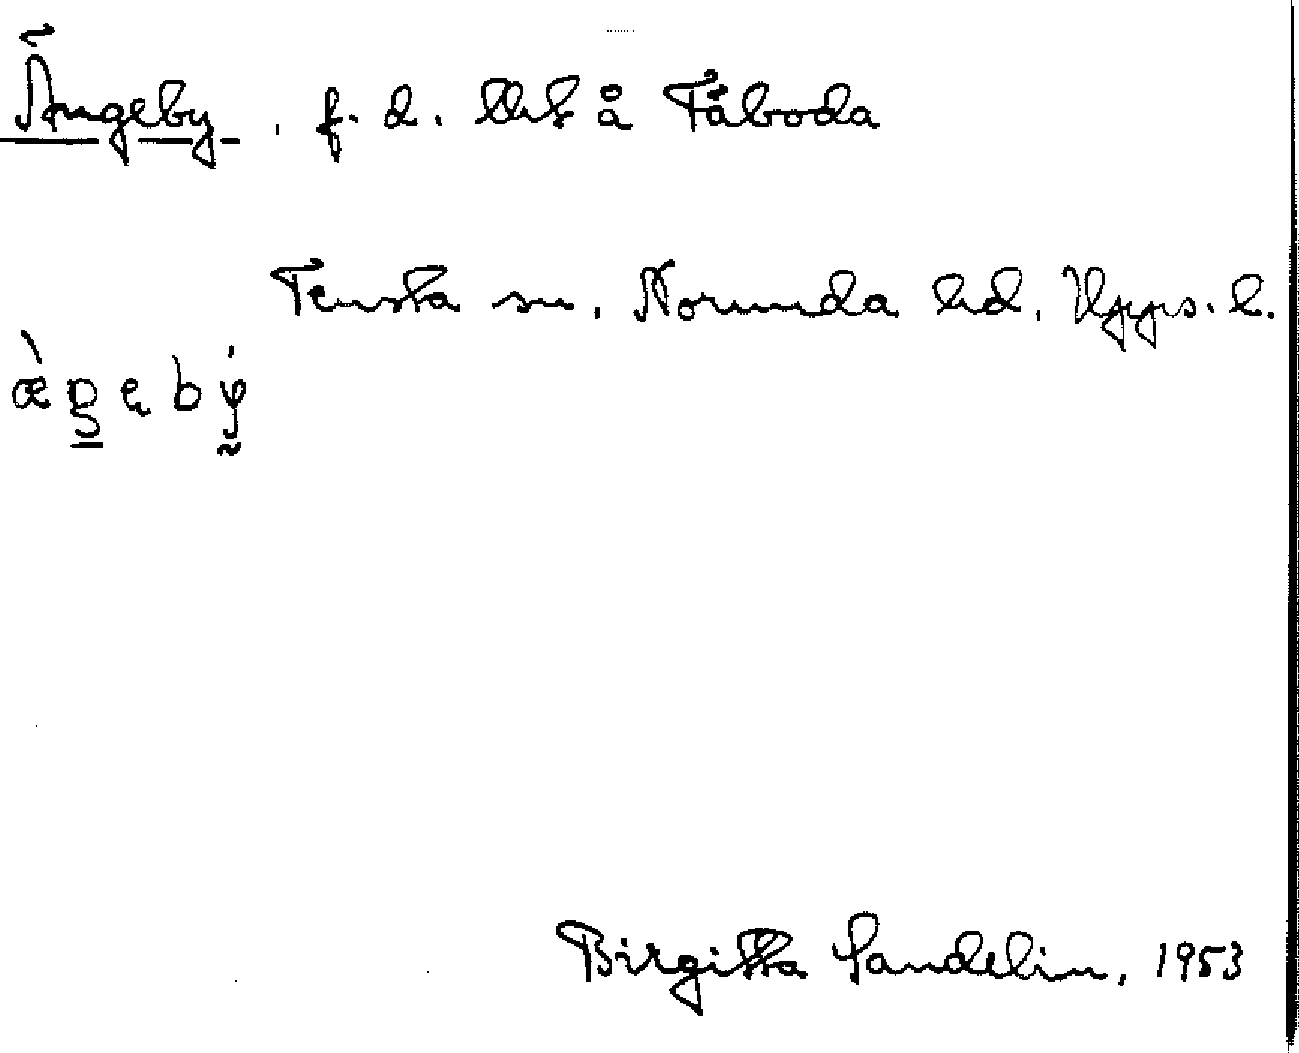 Ängeby, f. d. lht å Tåboda
Tensta sn, Norunda hd, Upps. l.
Birgitta Sandelin, 1953